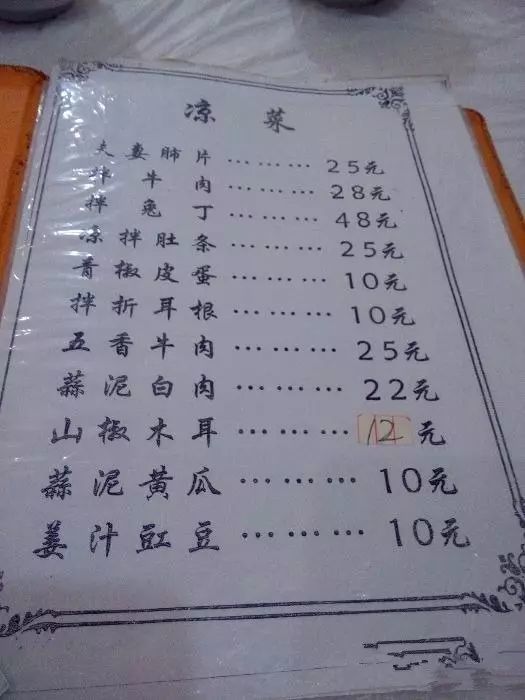 凉 菜
夫妻肺片 ……… 25元
拌牛肉 ……… 28元
拌兔丁 ……… 48元
凉拌肚条 ……… 25元
青椒皮蛋 ……… 10元
拌折耳根 ……… 10元
五香牛肉 ……… 25元
蒜泥白肉 ……… 22元
山椒木耳 ……… 12元
蒜泥黄瓜 ……… 10元
姜汁豇豆 ……… 10元